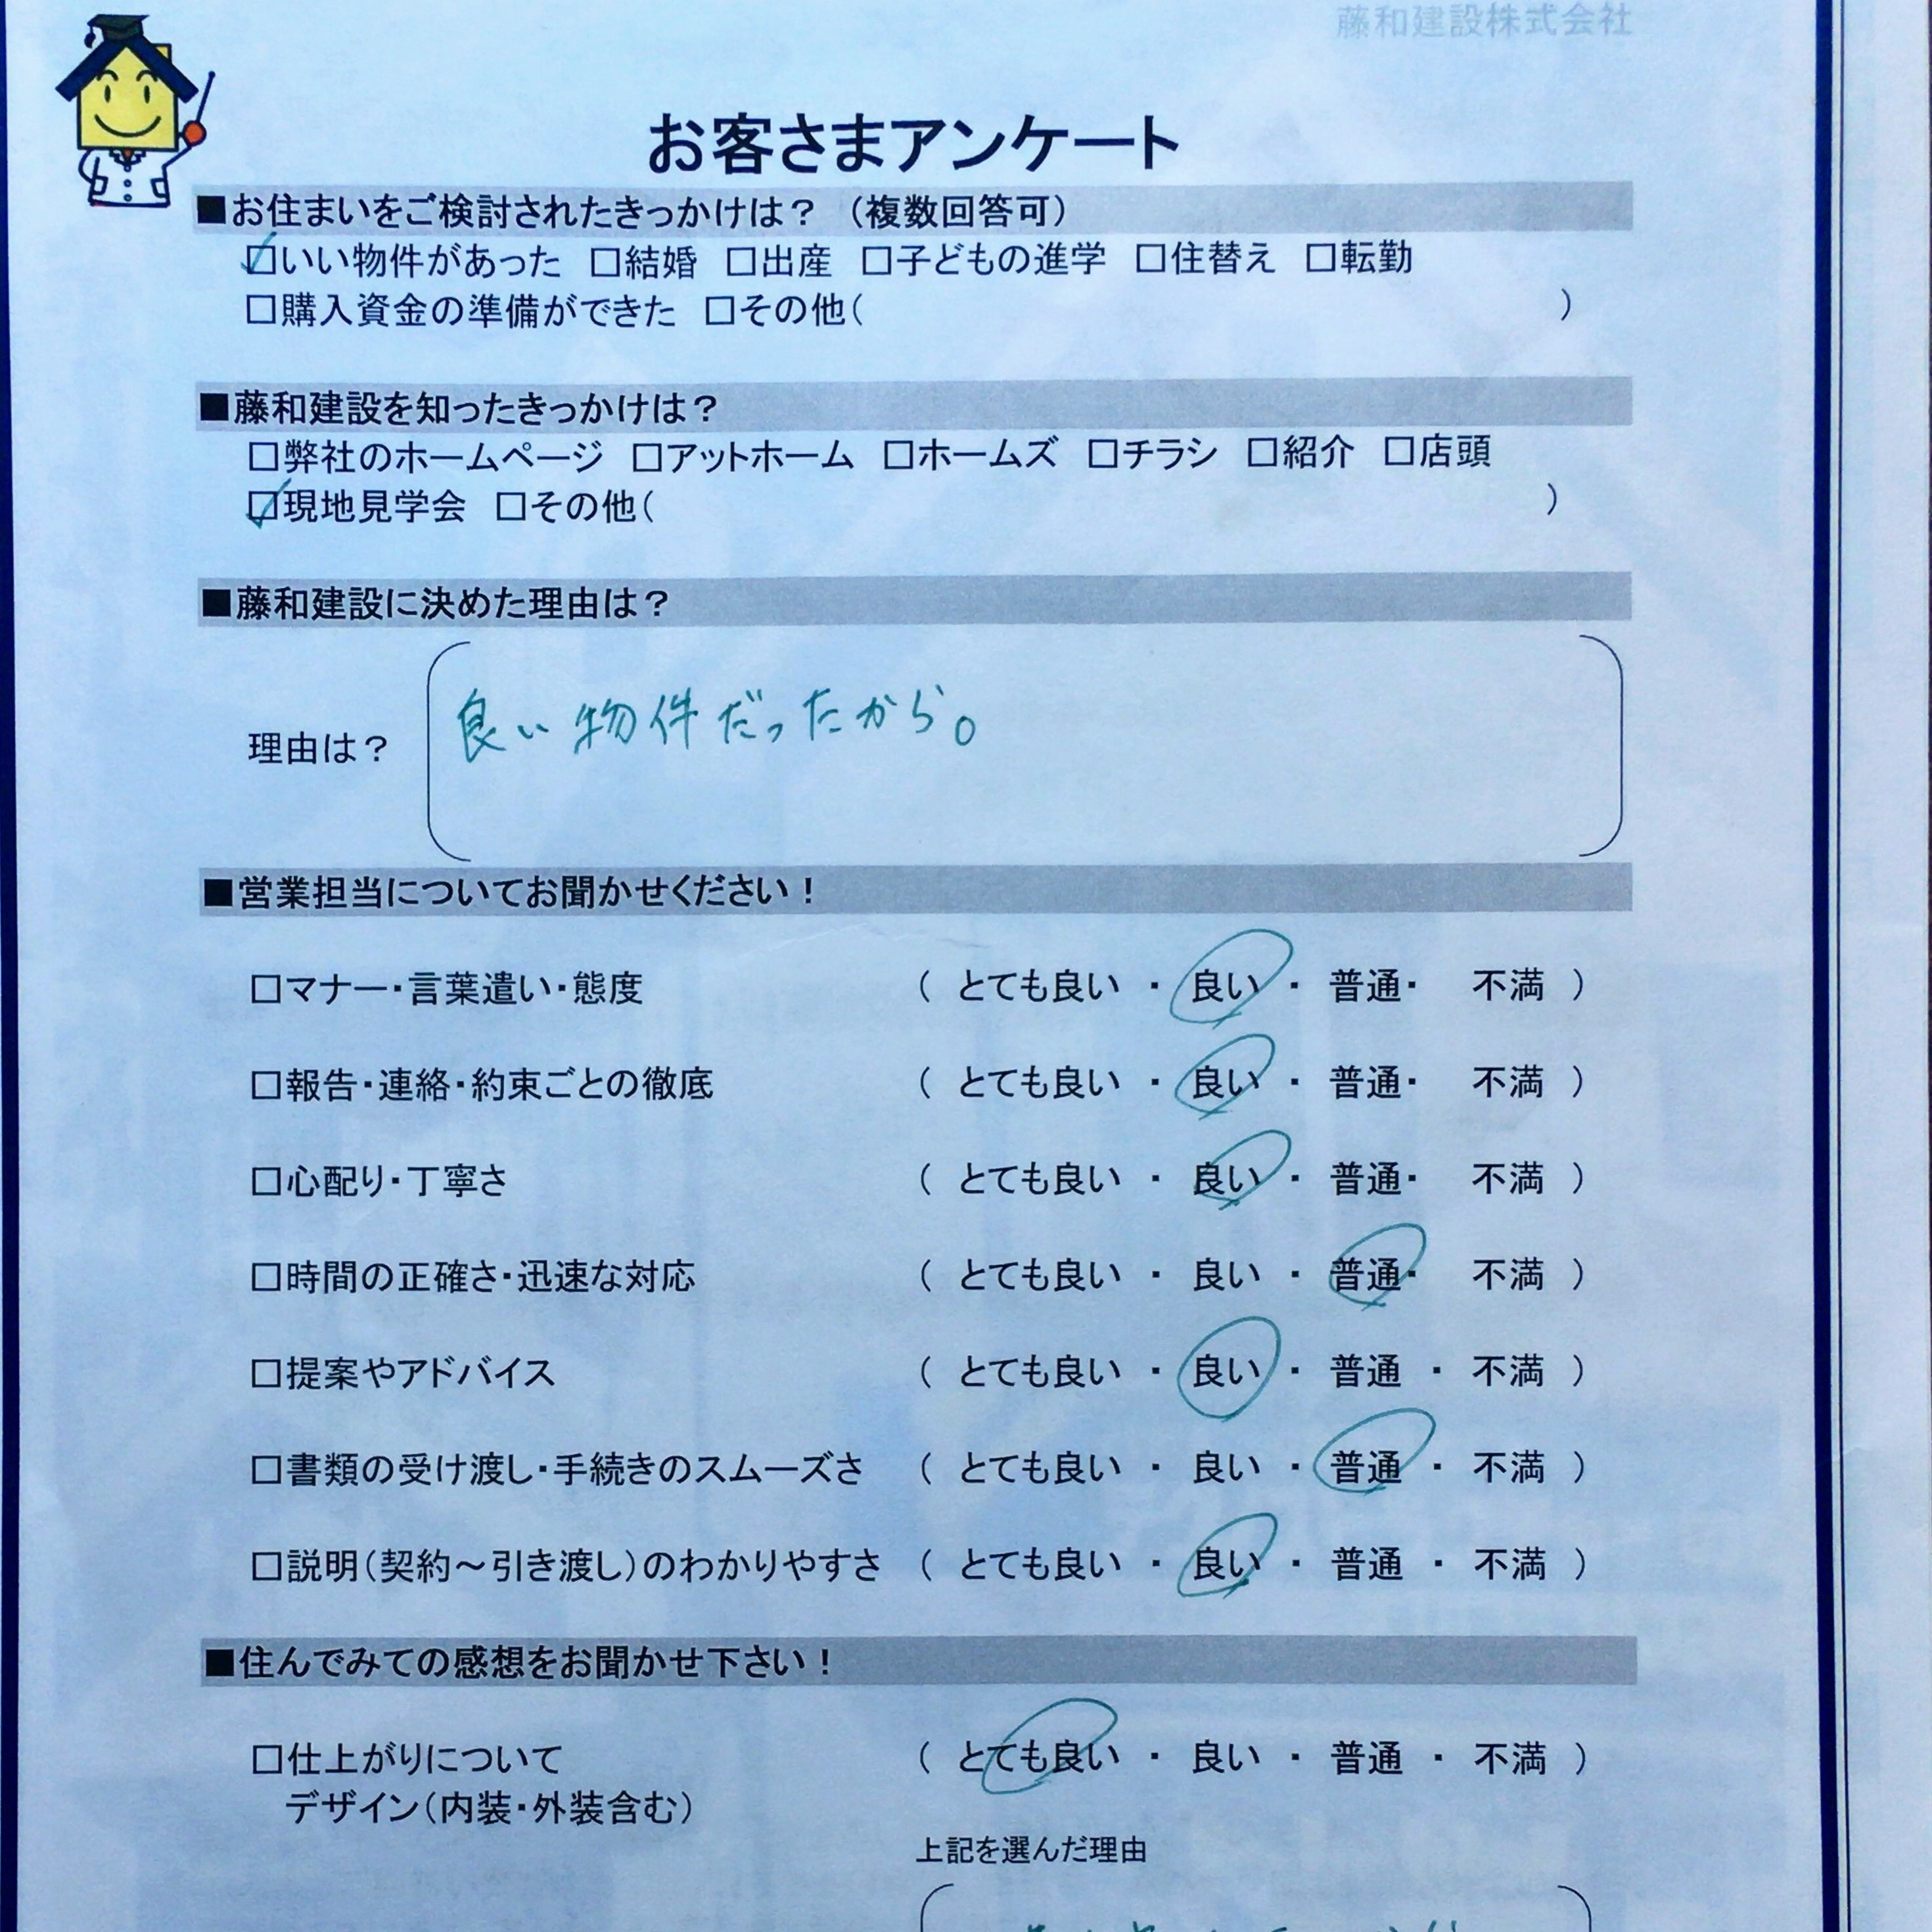 藤和建設株式会社
お客さまアンケート
■お住まいをご検討されたきっかけは？（複数回答可）
☑いい物件があった □結婚 □出産 □子どもの進学 □住替え □転勤
□購入資金の準備ができた □その他（ ）
■藤和建設を知ったきっかけは？
□弊社のホームページ □アットホーム □ホームズ □チラシ □紹介 □店頭
☑現地見学会 □その他（ ）
■藤和建設に決めた理由は？
理由は？ 良い物件だったから。
■営業担当についてお聞かせください！
□マナー・言葉遣い・態度 （ とても良い ・ 良い ・ 普通・ 不満 ）
□報告・連絡・約束ごとの徹底 （ とても良い ・ 良い ・ 普通・ 不満 ）
□心配り・丁寧さ （ とても良い ・ 良い ・ 普通・ 不満 ）
□時間の正確さ・迅速な対応 （ とても良い ・ 良い ・ 普通・ 不満 ）
□提案やアドバイス （ とても良い ・ 良い ・ 普通 ・ 不満 ）
□書類の受け渡し・手続きのスムーズさ （ とても良い ・ 良い ・ 普通 ・ 不満 ）
□説明（契約～引き渡し）のわかりやすさ （ とても良い ・ 良い ・ 普通 ・ 不満 ）
■住んでみての感想をお聞かせ下さい！
□仕上がりについて （ とても良い ・ 良い ・ 普通 ・ 不満 ）
デザイン（内装・外装含む）
上記を選んだ理由